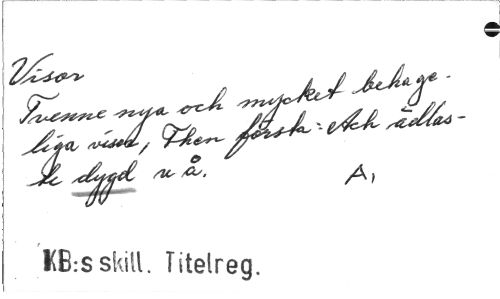 Visor
Tvenne nya och mycket behage-
liga visor, Then första: Ach ädlas-
te dygd u å.
A,
KB:s skill. Titelreg.